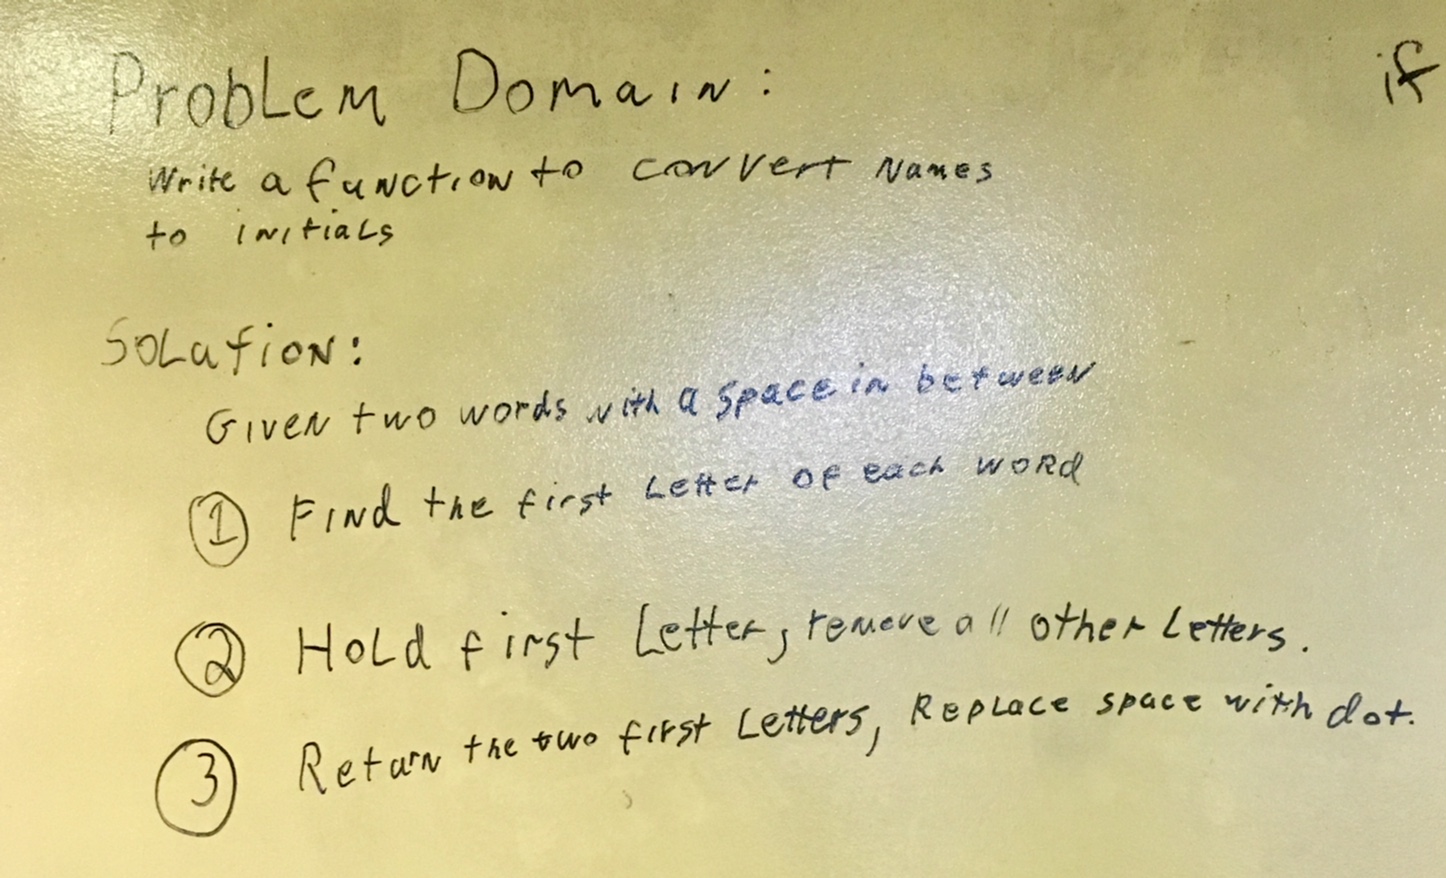 Problem Domain:
if
Write a function to convert Names
to initials
Solution:
Given two words with a space in between
1 Find the first Letter of each word
2 Hold first Letter, remove all other Letters.
3 Return the two first Letters, Replace space with dot.